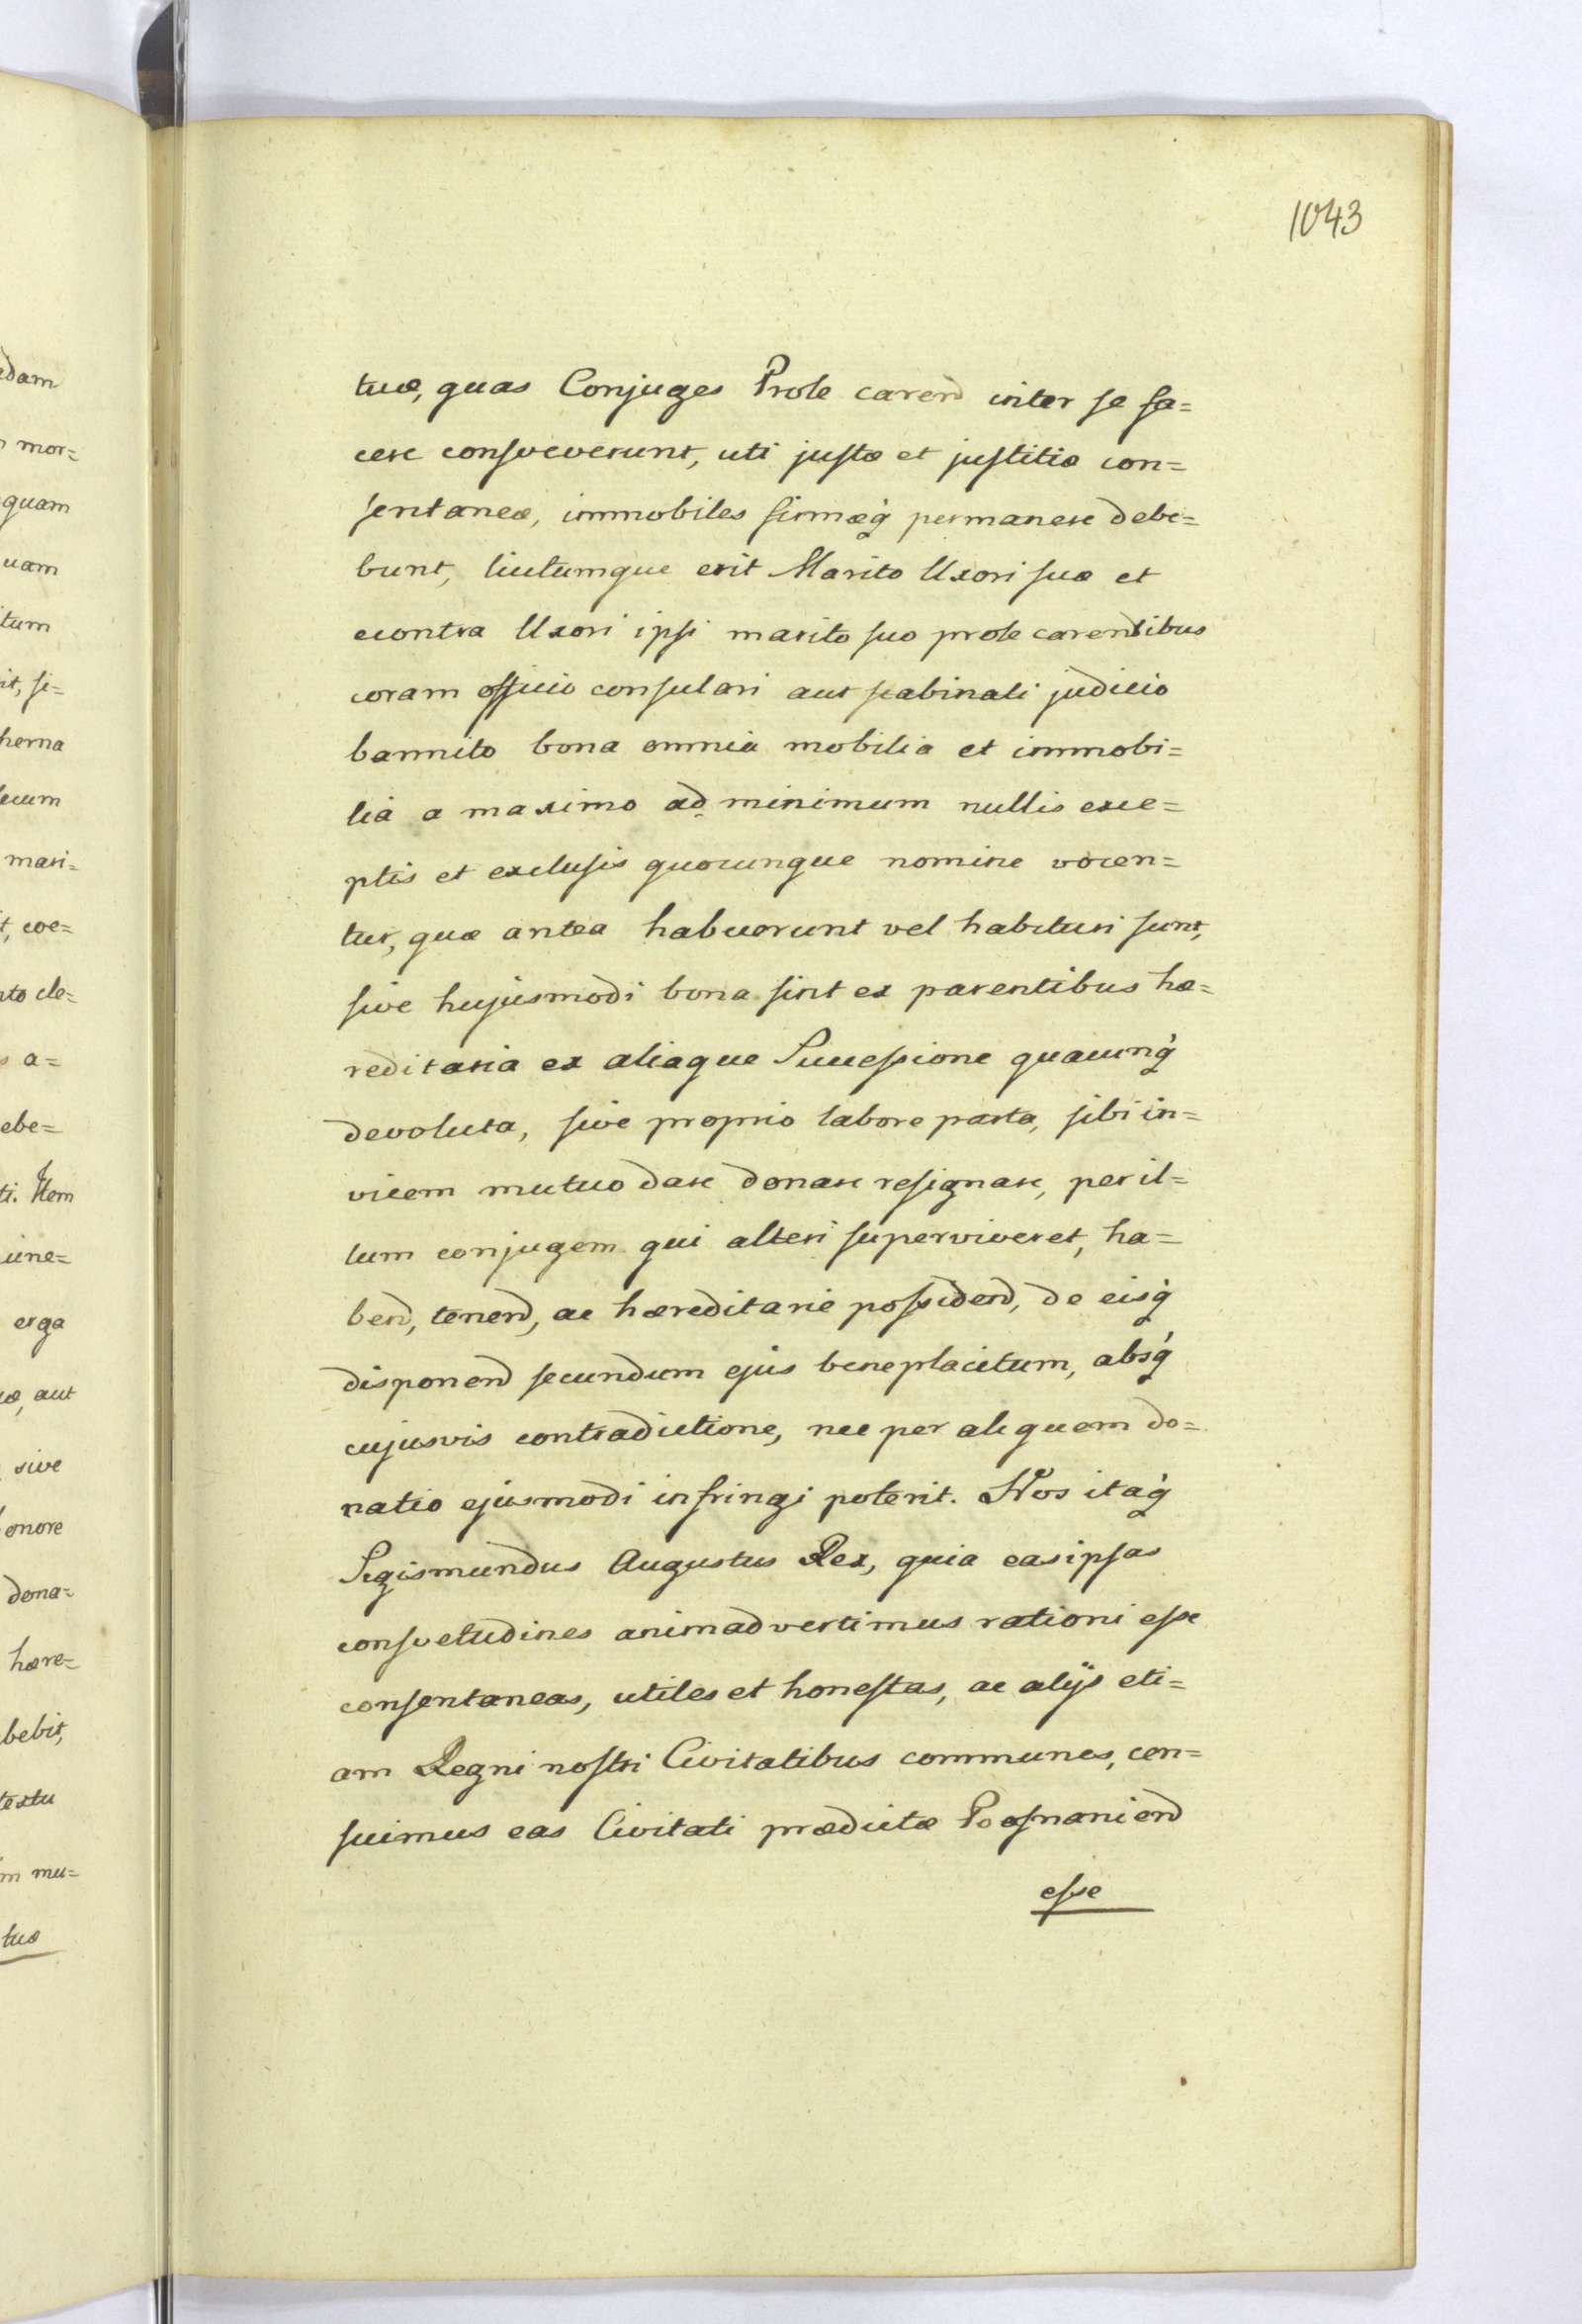 1043
tuæ, quas Conjuges Prole carend inter se fa=
cere consveverunt, uti justæ et justitiæ con=
sentaneæ, immobiles firmæq̃ permanere debe=
bunt, licitumque erit Marito Uxori suæ et
econtra Uxori ipsi marito suo prole carentibus
coram officio consulari aut scabinali judicio
bannito bona omnia mobilia et immobi=
lia a maximo ad minimum nullis exce=
ptis et exclusis quocunque nomine vocen=
tur, quæ antea habuerunt vel habituri sunt,
sive hujusmodi bona sint ex parentibus hæ=
reditaria ex aliaque Successione quacunq̃
devoluta, sive proprio labore parta, sibi in=
vicem mutuo dare donare resignare, per il=
lum conjugem qui alteri superviveret, ha=
bend, tenend, ac hæreditarie possidend, de eisq̃
disponend secundum ejus beneplacitum, absq̃
cujusvis contradictione, nec per aliquem do=
natio ejusmodi infringi poterit. Nos itaq̃
Sigismundus Augustus Rex, quia easipsas
consvetudines animadvertimus rationi esse
consentaneas, utiles et honestas, ac alijs eti=
am Regni nostri Civitatibus communes, cen=
suimus eas Civitati prædictæ Posnaniend
esse
edam
mor=
quam
uam
itum
it, si=
herna
secum
mari=
t, coe=
nto de=
a=
ebe=
ti. Item
iine=
erga
æ, aut
sive
onore
dona=
hære=
bebit,
textu
m mu=
tuæ